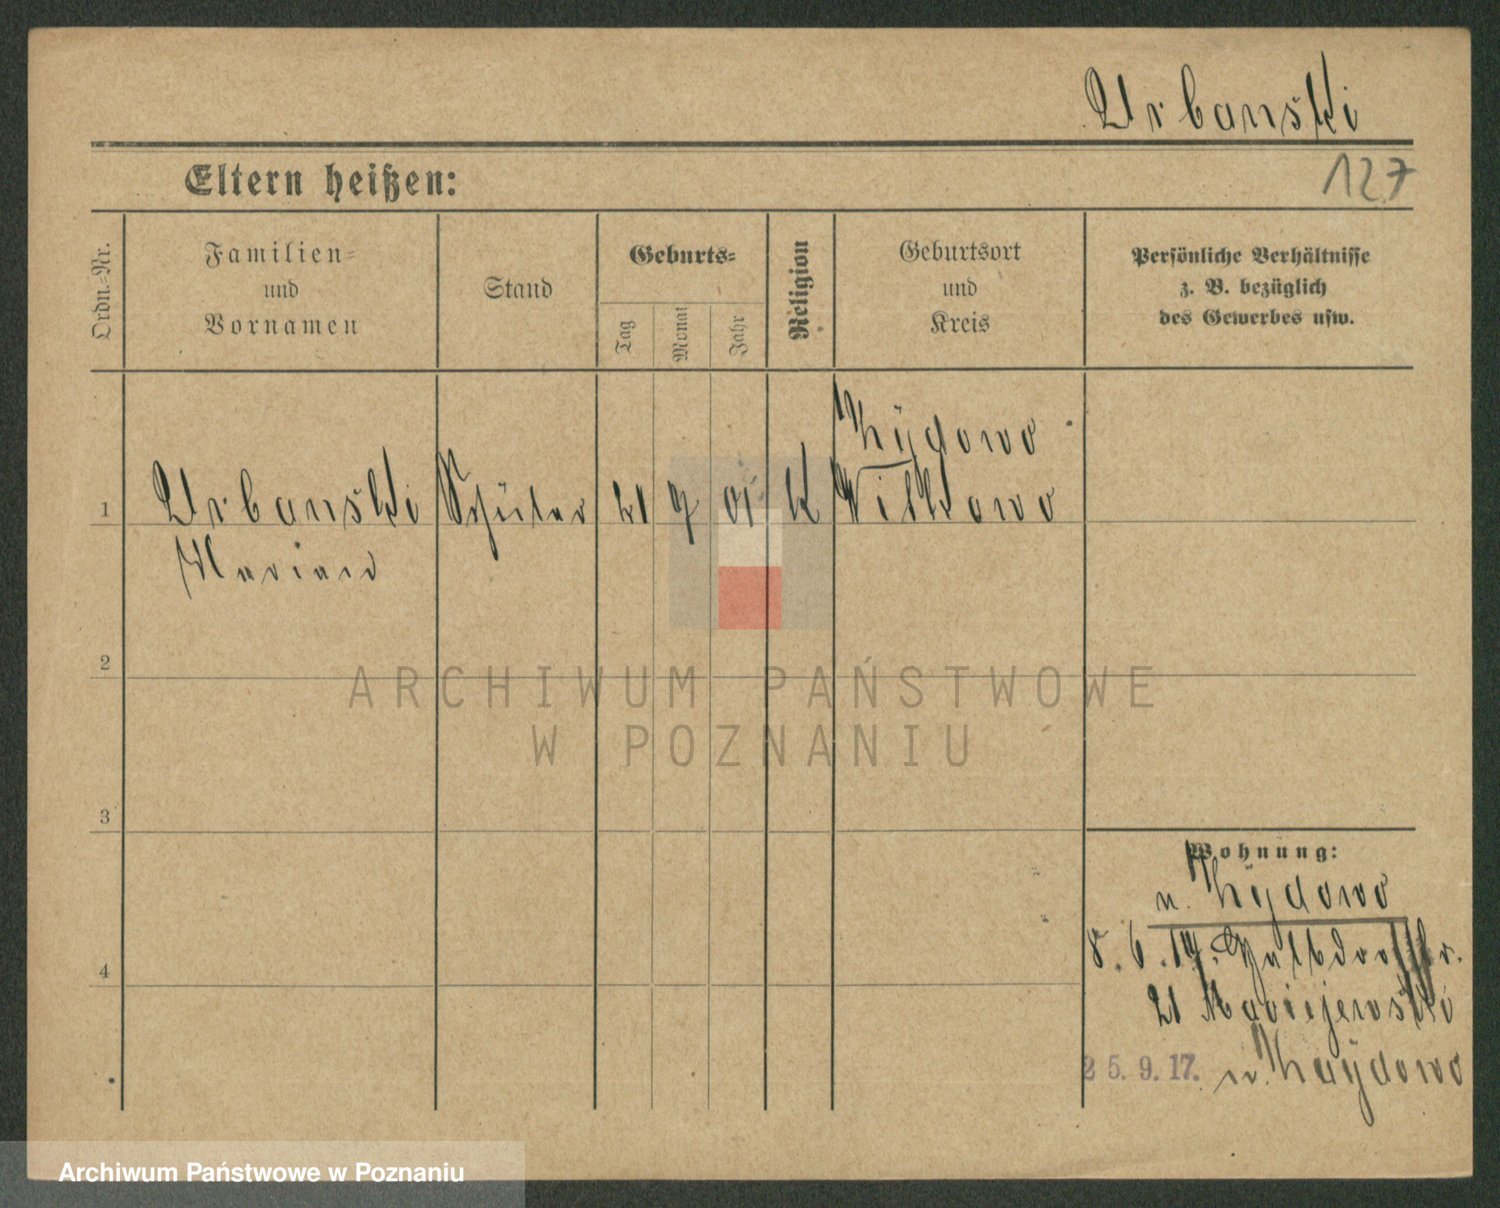 Urbanski
127
Eltern heißen:
Ordn.-Nr.
Familien-
und
Vornamen
Stand
Geburts-
Tag
Monat
Jahr
Religion
Geburtsort
und
Kreis
Persönliche Verhältnisse
z. B. bezüglich
des Gewerbes usw.
1
Urbanski
Marian
Schüler
21
7
01
K
Witkowo
2
3
4
Wohnung:
n.
8. 6. 14.
21 Maciejewski
25. 9. 17. n.
ARCHIWUM PAŃSTWOWE
W POZNANIU
Archiwum Państwowe w Poznaniu